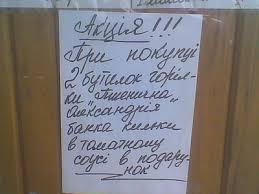 Акція!!!
При покупці
2 бутилок горіл-
ки "Пшенична"
Александрія
банка кильки
в томатному
соусі в подару-
нок